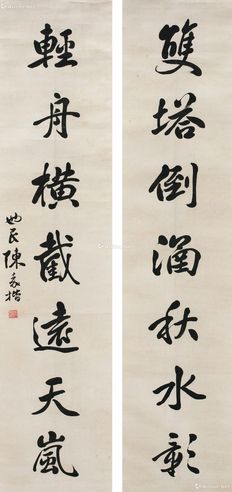 雙塔倒涵秋水影
輕舟橫截遠天嵐
民陳家楷